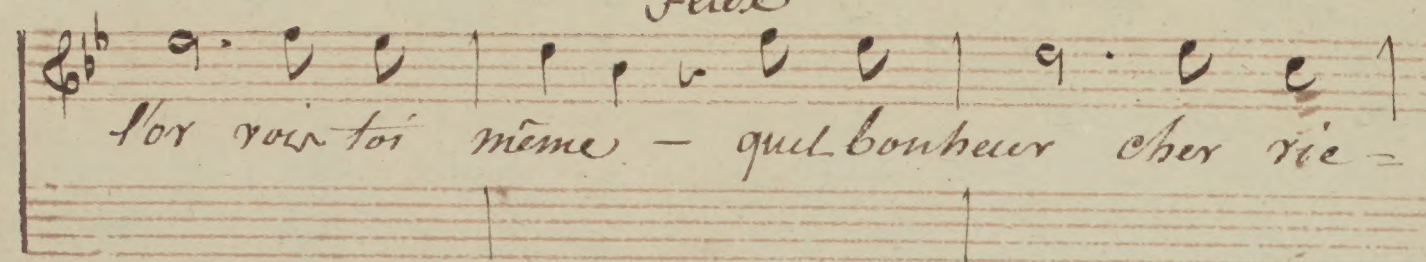 l'or vois toi même – quel bonheur cher rie =